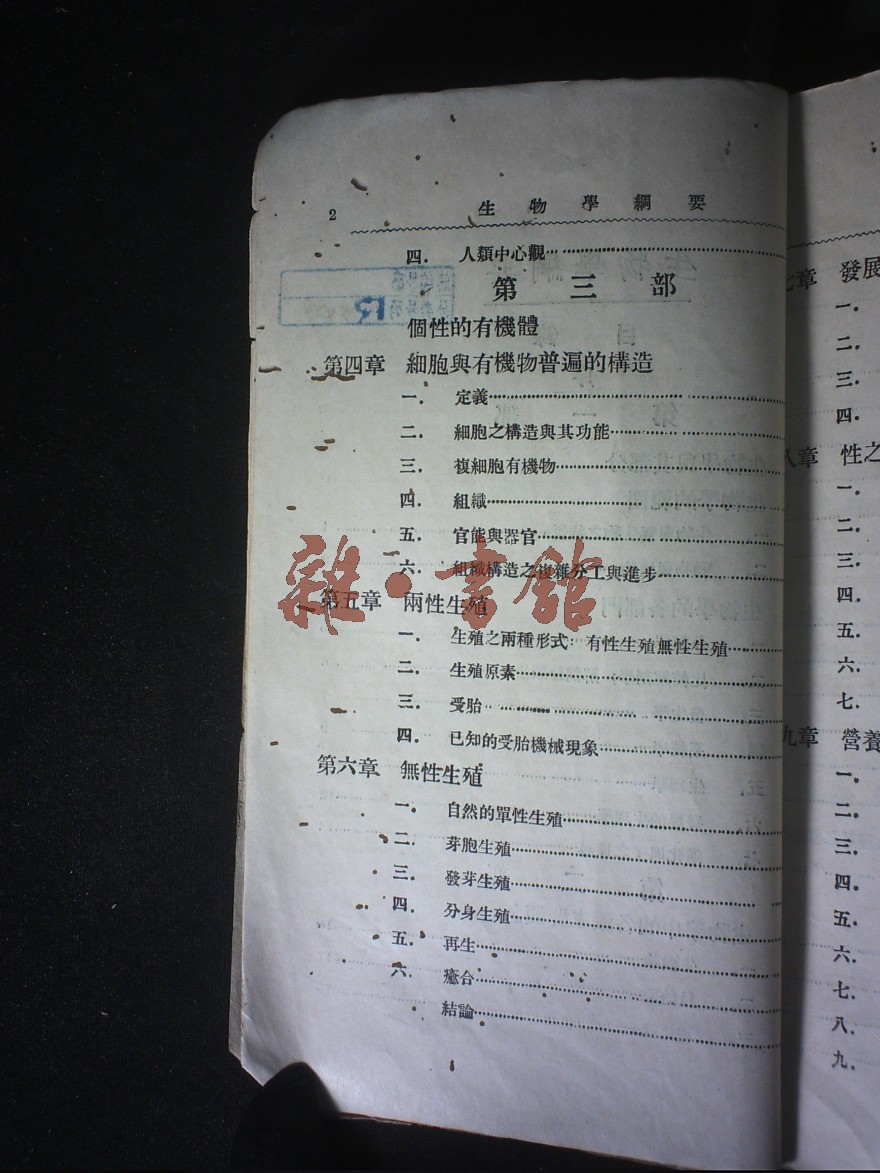 2 生物學綱要
四. 人類中心觀
第三部
個性的有機體
第四章 細胞與有機物普遍的構造
一. 定義
二. 細胞之構造與其功能
三. 複細胞有機物
四. 組織
五. 官能與器官
六. 組織構造之複雜分工與進步
雜·書館
第五章 兩性生殖
一. 生殖之兩種形式：有性生殖無性生殖
二. 生殖原素
三. 受胎
四. 已知的受胎機械現象
第六章 無性生殖
一. 自然的單性生殖
二. 芽胞生殖
三. 發芽生殖
四. 分身生殖
五. 再生
六. 癒合
結論
七章 發展
一.
二.
三.
四.
八章 性之
一.
二.
三.
四.
五.
六.
七.
九章 營養
一.
二.
三.
四.
五.
六.
七.
八.
九.